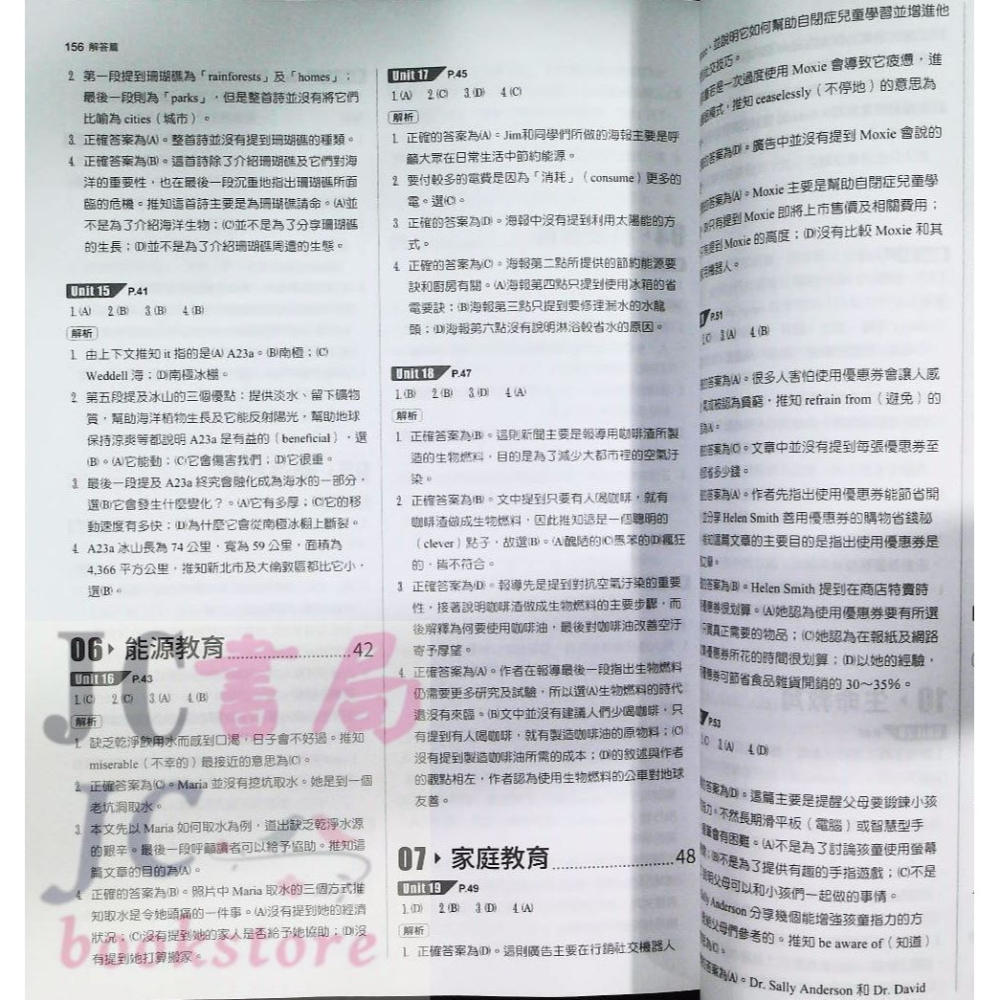 156 解答篇
2. 第一段提到珊瑚礁為「rainforests」及「homes」;
最後一段則為「parks」，但是整首詩並沒有將它們
比喻為 cities（城市）。
3. 正確答案為(A)。整首詩並沒有提到珊瑚礁的種類。
4. 正確答案為(B)。這首詩除了介紹珊瑚礁及它們對海
洋的重要性，也在最後一段沉重地指出珊瑚礁所面
臨的危機。推知這首詩主要是為珊瑚礁請命。(A)並
不是為了介紹海洋生物；(C)並不是為了分享珊瑚礁
的生長；(D)並不是為了介紹珊瑚礁周遭的生態。
Unit 15 P.41
1. (A) 2. (B) 3. (B) 4. (B)
解析
1. 由上下文推知 it 指的是(A) A23a。(B)南極；(C)
Weddell 海；(D)南極冰棚。
2. 第五段提及冰山的三個優點：提供淡水、留下礦物
質，幫助海洋植物生長及它能反射陽光，幫助地球
保持涼爽等都說明 A23a 是有益的（beneficial），選
(B)。(A)它能動；(C)它會傷害我們；(D)它很重。
3. 最後一段提及 A23a 終究會融化成為海水的一部分，
選(B)它會發生什麼變化？。(A)它有多厚；(C)它的移
動速度有多快；(D)為什麼它會從南極冰棚上斷裂。
4. A23a 冰山長為 74 公里，寬為 59 公里，面積為
4,366 平方公里，推知新北市及大倫敦區都比它小，
選(B)。
06 能源教育 42
Unit 16 P.43
1. (C) 2. (C) 3. (A) 4. (B)
解析
1. 缺乏乾淨飲用水而感到口渴，日子會不好過。推知
miserable（不幸的）最接近的意思為(C)。
2. 正確答案為(C)。Maria 並沒有挖坑取水。她是到一個
老坑洞取水。
3. 本文先以 Maria 如何取水為例，道出缺乏乾淨水源
的艱辛。最後一段呼籲讀者可以給予協助。推知這
篇文章的目的為(A)。
4. 正確的答案為(B)。照片中 Maria 取水的三個方式推
知取水是令她頭痛的一件事。(A)沒有提到她的經濟
狀況；(C)沒有提到她的家人是否給予她協助；(D)沒
有提到她打算搬家。
JC書局
JC
bookstore
Unit 17 P.45
1. (A) 2. (C) 3. (D) 4. (C)
解析
1. 正確的答案為(A)。Jim和同學們所做的海報主要是呼
籲大眾在日常生活中節約能源。
2. 要付較多的電費是因為「消耗」（consume）更多的
電。選(C)。
3. 正確的答案為(D)。海報中沒有提到利用太陽能的方
式。
4. 正確的答案為(C)。海報第二點所提供的節約能源要
訣和廚房有關。(A)海報第四點只提到使用冰箱的省
電要訣；(B)海報第三點只提到要修理漏水的水龍
頭；(D)海報第六點沒有說明淋浴較省水的原因。
Unit 18 P.47
1. (B) 2. (B) 3. (D) 4. (A)
解析
1. 正確答案為(B)。這則新聞主要是報導用咖啡渣所製
造的生物燃料，目的是為了減少大都市裡的空氣汙
染。
2. 正確答案為(B)。文中提到只要有人喝咖啡，就有
咖啡渣做成生物燃料，因此推知這是一個聰明的
（clever）點子，故選(B)。(A)醜陋的(C)愚笨的(D)瘋狂
的，皆不符合。
3. 正確答案為(D)。報導先是提到對抗空氣汙染的重要
性，接著說明咖啡渣做成生物燃料的主要步驟，而
後解釋為何要使用咖啡油，最後對咖啡油改善空汙
寄予厚望。
4. 正確答案為(A)。作者在報導最後一段指出生物燃料
仍需要更多研究及試驗，所以選(A)生物燃料的時代
還沒有來臨。(B)文中並沒有建議人們少喝咖啡，只
有提到有人喝咖啡，就有製造咖啡油的原物料；(C)
沒有提到製造咖啡油所需的成本；(D)的敘述與作者
的觀點相左，作者認為使用生物燃料的公車對地球
友善。
07 家庭教育 48
Unit 19 P.49
1. (D) 2. (B) 3. (D) 4. (A)
解析
1. 正確答案為(D)。這則廣告主要在行銷社交機器人
，並說明它如何幫助自閉症兒童學習並增進他
社交技巧。
是一次過度使用 Moxie 會導致它疲憊，進
模式，推知 ceaselessly（不停地）的意思為
答案為(D)。廣告中並沒有提到 Moxie 會說的
答案為(A)。Moxie 主要是幫助自閉症兒童學
只有提到 Moxie 即將上市售價及相關費用；
提到 Moxie 的高度；(D)沒有比較 Moxie 和其
機器人。
P.51
3. (A) 4. (B)
答案為(A)。很多人害怕使用優惠券會讓人感
或被認為貧窮，推知 refrain from（避免）的
答案為(C)。文章中並沒有提到每張優惠券至
省多少錢。
答案為(A)。作者先指出使用優惠券能節省開
分享 Helen Smith 善用優惠券的購物省錢祕
推知這篇文章的主要目的是指出使用優惠券是
答案為(B)。Helen Smith 提到在商店特賣時
優惠券很划算。(A)她認為使用優惠券要有所選
買真正需要的物品；(C)她認為在報紙及網路
優惠券所花的時間很划算；(D)以她的經驗，
優惠券可節省食品雜貨開銷的 30～35%。
P.53
3. (A) 4. (D)
答案為(D)。這篇主要是提醒父母要鍛鍊小孩
能力。不然長期滑平板（電腦）或智慧型手
會有困難。(A)不是為了討論孩童使用螢幕
不是為了提供有趣的手指遊戲；(C)不是
父母可以和小孩們一起做的事情。
Sally Anderson 分享幾個能增強孩童指力的方
父母們參考的。推知 be aware of（知道）
答案為(A)。Dr. Sally Anderson 和 Dr. David